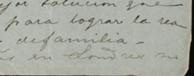 jor solucion que
para lograr la rea
de familia -
es en Londres no